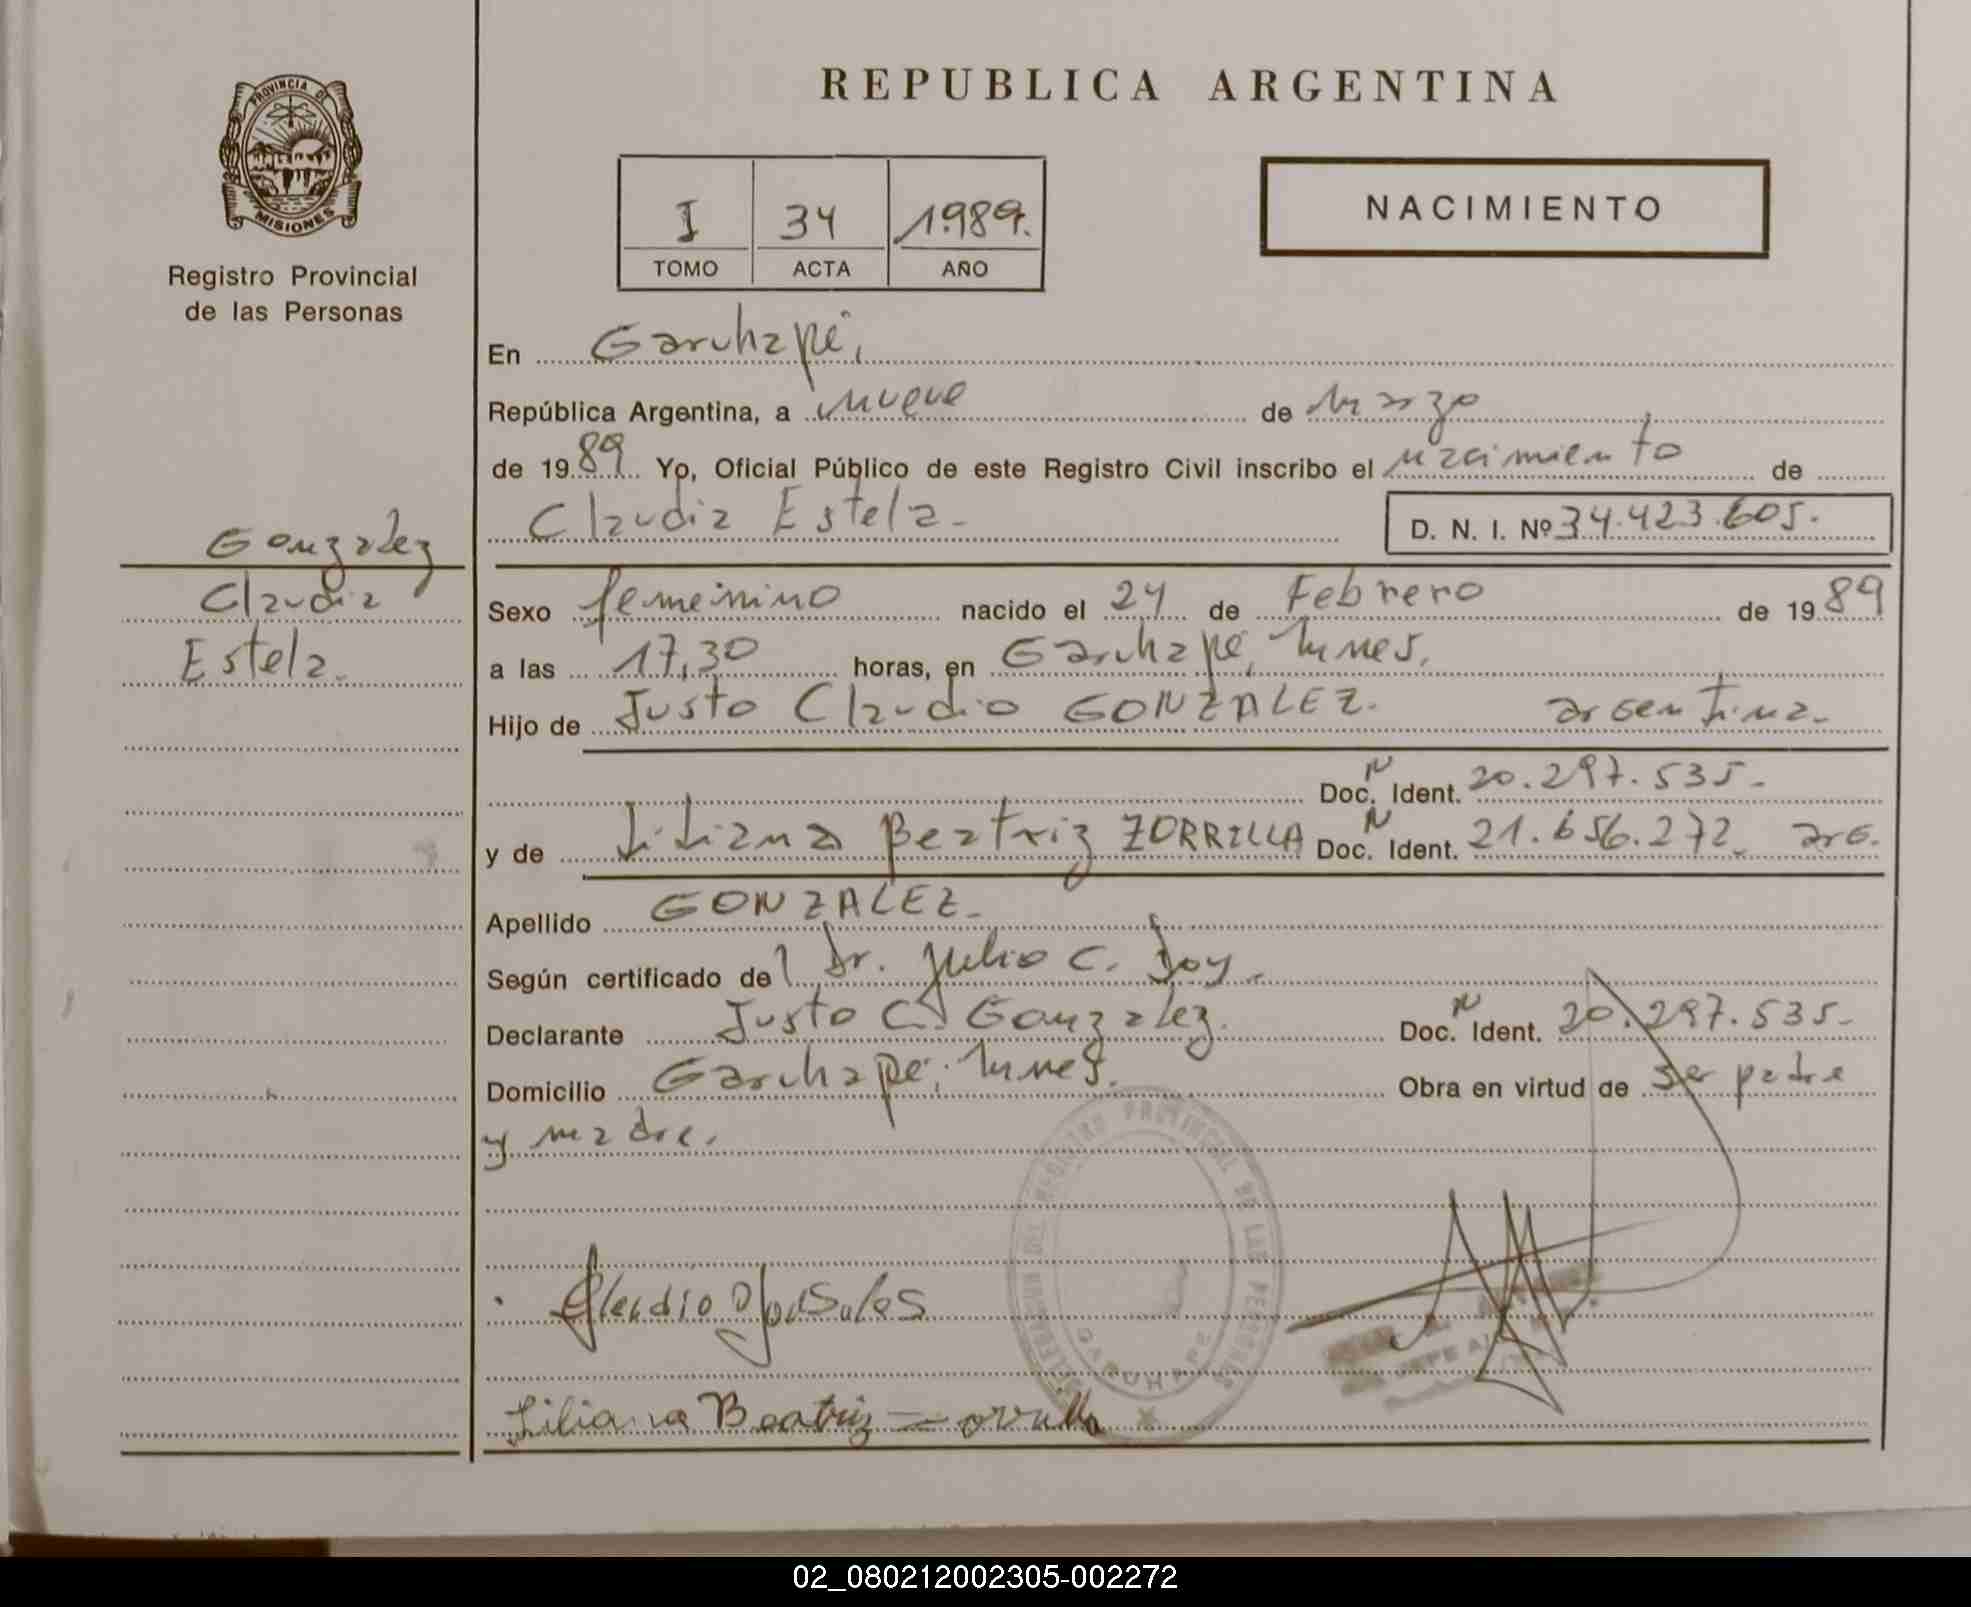 REPUBLICA ARGENTINA
PROVINCIA DE
MISIONES
Registro Provincial
de las Personas
I 34 1.989.
TOMO ACTA AÑO
NACIMIENTO
En Garuhapé,
República Argentina, a nueve de marzo
de 1989 Yo, Oficial Público de este Registro Civil inscribo el nacimiento de
Claudia Estela.
D. N. I. Nº 34.423.605.
Gonzalez
Claudia
Estela.
Sexo femenino nacido el 24 de Febrero de 1989
a las 17,30 horas, en Garuhapé,
Hijo de Justo Claudio GONZALEZ. argentina.
Doc. N Ident. 20.297.535.
y de Liliana Beatriz ZORRILLA Doc. N Ident. 21.656.272. arg.
Apellido GONZALEZ.
Según certificado del Dr. Julio C.
Declarante Justo C. Gonzalez. Doc. N Ident. 20.297.535.
Domicilio Garuhapé, Obra en virtud de ser padre
y madre.
DELEGACION DEL REGISTRO PROVINCIAL DE LAS PERSONAS
GARUHAPE
JEFE
Claudio Gonsales
Liliana Beatriz Zorrilla
02_080212002305-002272